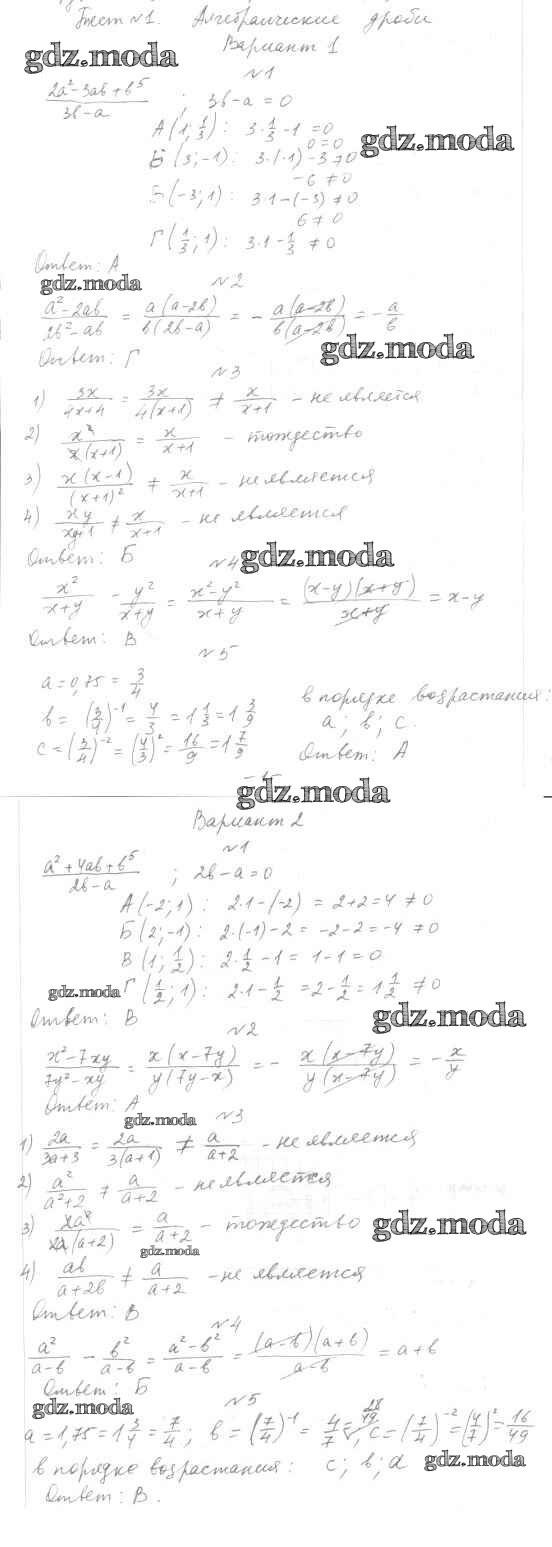 Тест №1. Алгебраические дроби
Вариант 1
gdz.moda
№1
(2a²-3ab+b⁵)/(3b-a) ; 3b-a=0
А(1; 1/3): 3·1/3-1=0
0=0
gdz.moda
Б(3;-1): 3·(-1)-3≠0
-6≠0
Б(-3;1): 3·1-(-3)≠0
6≠0
Г(1/3;1): 3·1-1/3≠0
Ответ: А
gdz.moda
№2
(a²-2ab)/(2b²-ab) = a(a-2b)/b(2b-a) = - a(a-2b)/b(a-2b) = - a/b
Ответ: Г
gdz.moda
№3
1) 3x/(4x+4) = 3x/4(x+1) ≠ x/(x+1) - не является
2) x²/x(x+1) = x/(x+1) - тождество
3) x(x-1)/(x+1)² ≠ x/(x+1) - не является
4) xy/(xy+1) ≠ x/(x+1) - не является
Ответ: Б
gdz.moda
№4
x²/(x+y) - y²/(x+y) = (x²-y²)/(x+y) = (x-y)(x+y)/(x+y) = x-y
Ответ: В
№5
a=0,75=3/4
b=(3/4)⁻¹=4/3=1 1/3=1 3/9
c=(3/4)⁻²=(4/3)²=16/9=1 7/9
в порядке возрастания:
a; b; c.
Ответ: А
gdz.moda
Вариант 2
№1
(a²+4ab+b⁵)/(2b-a) ; 2b-a=0
А(-2;1): 2·1-(-2)=2+2=4≠0
Б(2;-1): 2·(-1)-2=-2-2=-4≠0
В(1; 1/2): 2·1/2-1=1-1=0
gdz.moda
Г(1/2;1): 2·1-1/2=2-1/2=1 1/2≠0
Ответ: В
gdz.moda
№2
(x²-7xy)/(7y²-xy) = x(x-7y)/y(7y-x) = - x(x-7y)/y(x-7y) = - x/y
Ответ: А
gdz.moda
№3
1) 2a/(3a+3) = 2a/3(a+1) ≠ a/(a+2) - не является
2) a²/(a²+2) ≠ a/(a+2) - не является
3) 2a²/2a(a+2) = a/(a+2) - тождество
gdz.moda
gdz.moda
4) ab/(a+2b) ≠ a/(a+2) - не является
Ответ: В
№4
a²/(a-b) - b²/(a-b) = (a²-b²)/(a-b) = (a-b)(a+b)/(a-b) = a+b
Ответ: Б
gdz.moda
№5
a=1,75=1 3/4=7/4; b=(7/4)⁻¹=4/7=28/49; c=(7/4)⁻²=(4/7)²=16/49
в порядке возрастания: c; b; a
gdz.moda
Ответ: В.